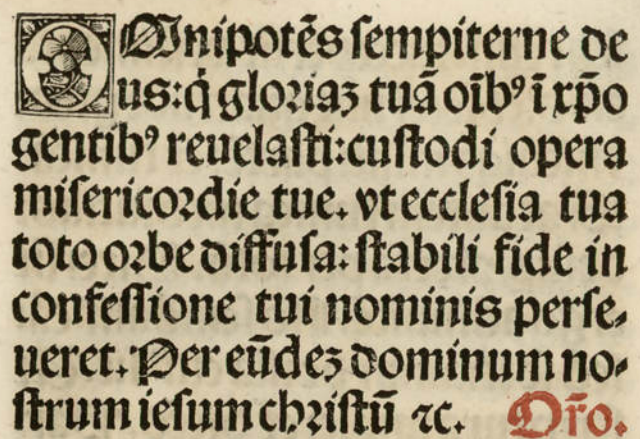 OMnipotẽs sempiterne de
us: q̃ gloriaꝫ tuã oĩbꝰ ĩ xp̃o
gentibꝰ reuelasti: custodi opera
misericordie tue. vt ecclesia tua
toto orbe diffusa: stabili fide in
confessione tui nominis perse-
ueret. Per eũdeꝫ dominum no-
strum iesum christũ ⁊c. Or̃o.